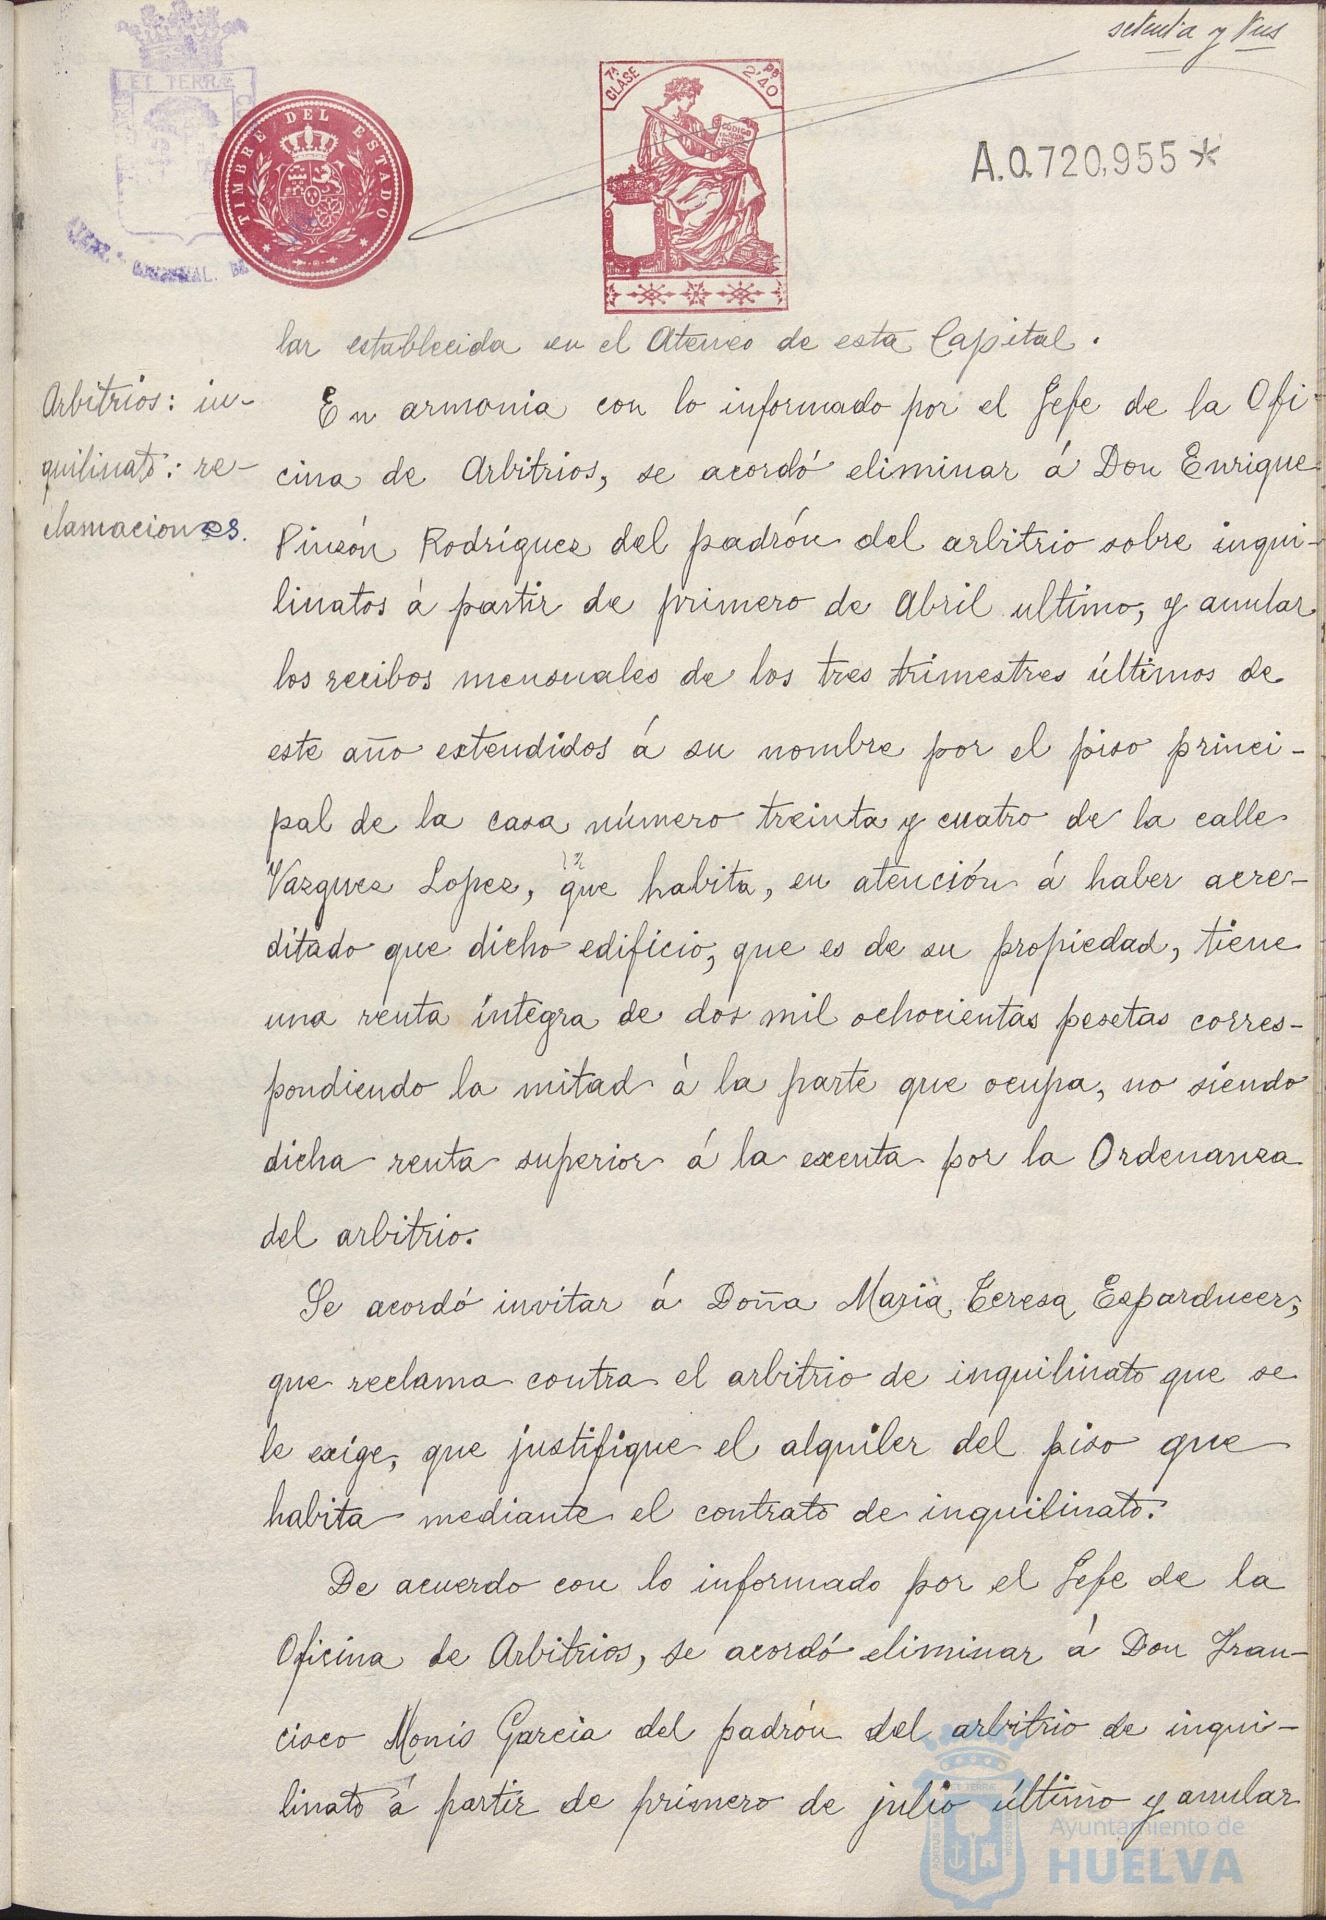 setenta y tres
ET TERRÆ
TIMBRE DEL ESTADO
7ª CLASE
Pts 2'40
CÓDIGO
A.0.720,955*
lar establecida en el Ateneo de esta Capital.
Arbitrios: in-
quilinato: re-
clamaciones.
En armonia con lo informado por el Gefe de la Ofi-
cina de Arbitrios, se acordó eliminar á Don Enrique
Pinzón Rodríguez del padrón del arbitrio sobre inqui-
linatos á partir de primero de Abril ultimo, y anular
los recibos mensuales de los tres trimestres últimos de
este año extendidos á su nombre por el piso princi-
pal de la casa número treinta y cuatro de la calle
Vazquez Lopez, que habita, en atención á haber acre-
ditado que dicho edificio, que es de su propiedad, tiene
una renta íntegra de dos mil ochocientas pesetas corres-
pondiendo la mitad á la parte que ocupa, no siendo
dicha renta superior á la exenta por la Ordenanza
del arbitrio.
Se acordó invitar á Doña Maria Teresa Esparducer,
que reclama contra el arbitrio de inquilinato que se
le exige, que justifique el alquiler del piso que
habita mediante el contrato de inquilinato.
De acuerdo con lo informado por el Gefe de la
Oficina de Arbitrios, se acordó eliminar á Don Fran-
cisco Monís Garcia del padrón del arbitrio de inqui-
linato á partir de primero de julio último y anular
Ayuntamiento de
HUELVA